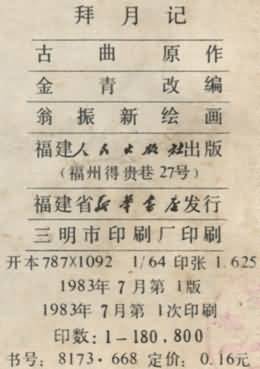 拜月记
古曲原作
金青改编
翁振新绘画
福建人民出版社出版
(福州得贵巷27号)
福建省新华书店发行
三明市印刷厂印刷
开本787×1092 1/64 印张 1.625
1983年7月第1版
1983年7月第1次印刷
印数:1-180,800
书号:8173·668 定价:0.16元